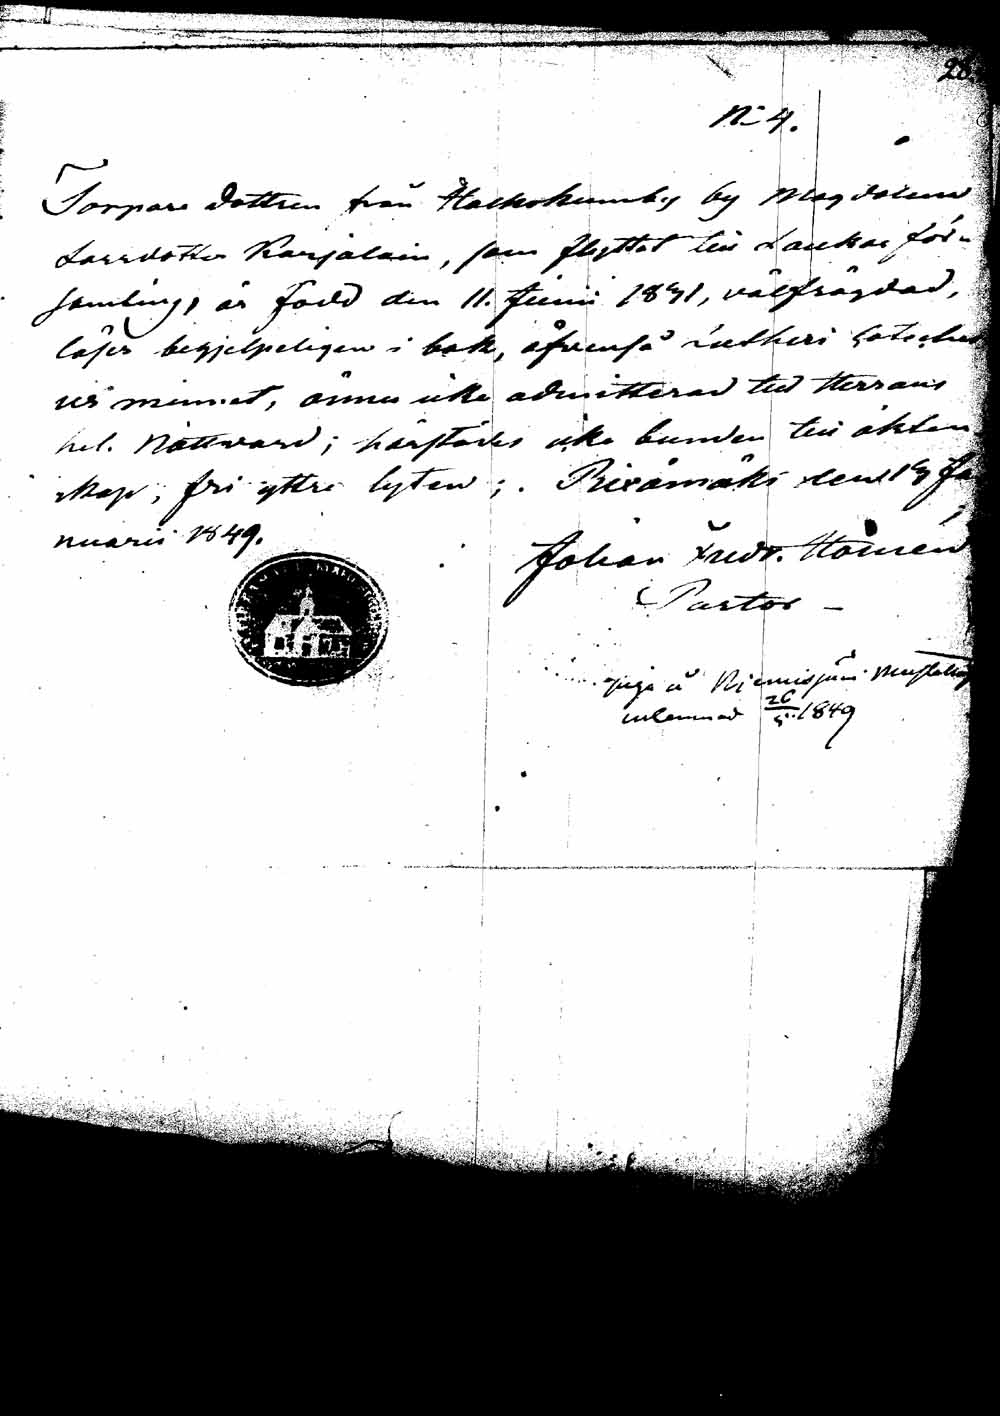 28
No 4.
Torpare dottren från Halkokumby by Magdalena
Larsdotter Karjalain, som flyttat till Laukas för-
samling, är född den 11. Junii 1831, välfrägdad,
läser begjelpeligen i bok, äfvenså Lutheri Cateches
ur minnet, ännu icke admitterad till Herrans
hel. Nattvard; härstädes icke bunden till äkten
skap; fri yttre lyten;. Pieksämäki den 19 Ja
nuarii 1849.
Johan Fredr.
Pastor
piga å Niemisjärvi
inlemnad 26/5 1849